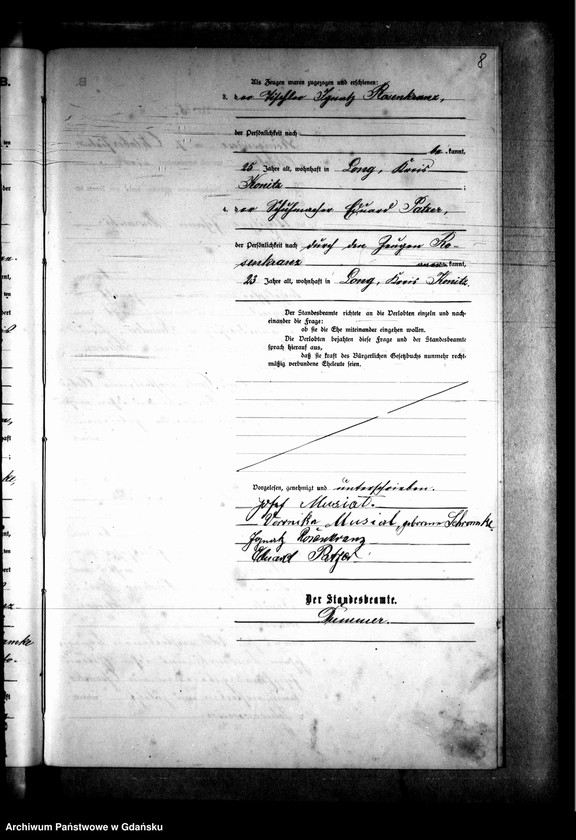 8
Als Zeugen waren zugezogen und erschienen:
3. der Tischler Ignatz Rosenkranz,
der Persönlichkeit nach
be kannt,
25 Jahre alt, wohnhaft in Long, Kreis
Konitz ;
4. der Schuhmacher Eduard Patzer,
der Persönlichkeit nach durch den Zeugen Ro-
senkranz kannt,
23 Jahre alt, wohnhaft in Long, Kreis Konitz.
Der Standesbeamte richtete an die Verlobten einzeln und nach-
einander die Frage:
ob sie die Ehe miteinander eingehen wollen.
Die Verlobten bejahten diese Frage und der Standesbeamte
sprach hierauf aus,
daß sie kraft des Bürgerlichen Gesetzbuchs nunmehr recht-
mäßig verbundene Eheleute seien.
Vorgelesen, genehmigt und unterschrieben.
Josef Musial.
Veronika Musial, geborene Schramke
Ignatz Rosenkranz
Eduard Patzer
Der Standesbeamte.
Archiwum Państwowe w Gdańsku